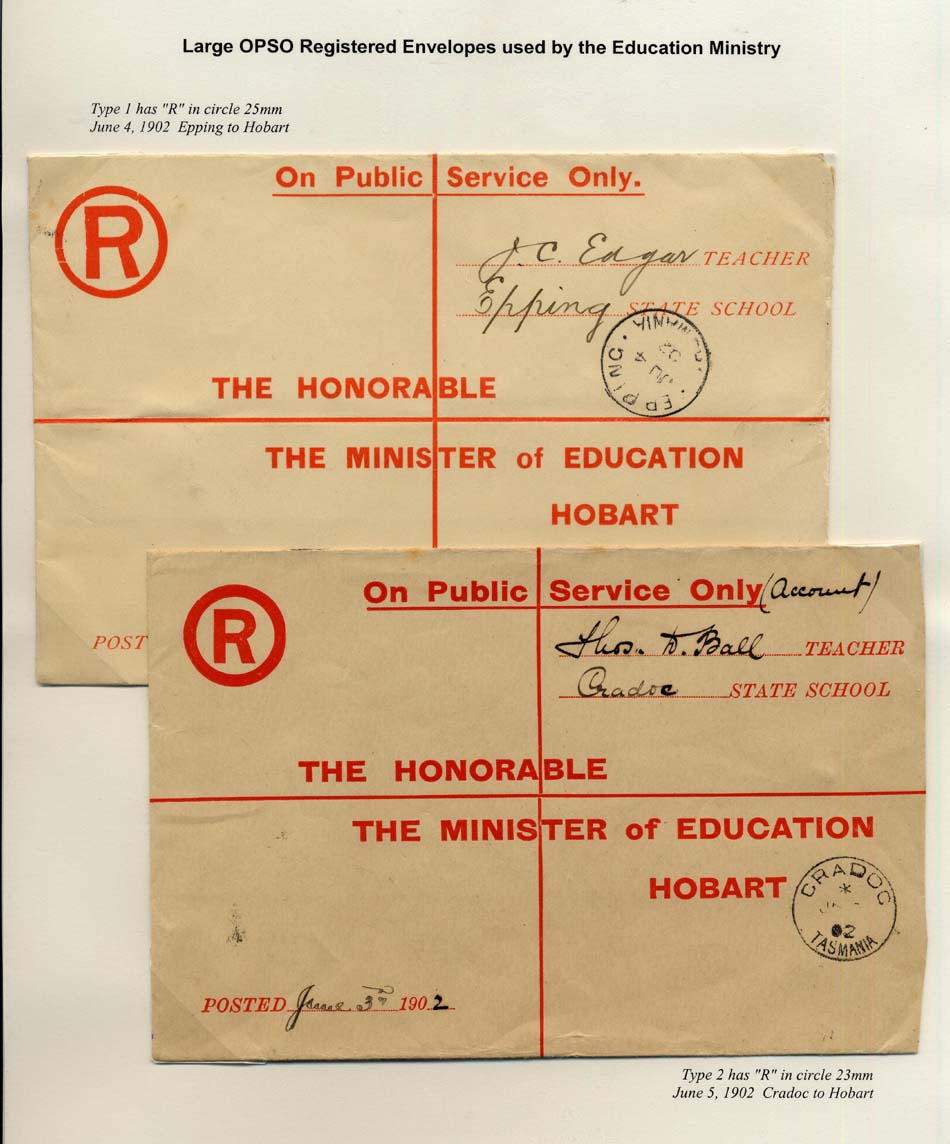 Large OPSO Registered Envelopes used by the Education Ministry
Type 1 has "R" in circle 25mm
June 4, 1902 Epping to Hobart
On Public Service Only.
R
J. C. Edgar TEACHER
Epping STATE SCHOOL
EPPING
JU 4
02
THE HONORABLE
THE MINISTER of EDUCATION
HOBART
POST
On Public Service Only (Account)
R
Thos. D. Ball TEACHER
Cradoc STATE SCHOOL
THE HONORABLE
THE MINISTER of EDUCATION
HOBART
CRADOC
*
02
TASMANIA
POSTED June 3rd 1902
Type 2 has "R" in circle 23mm
June 5, 1902 Cradoc to Hobart